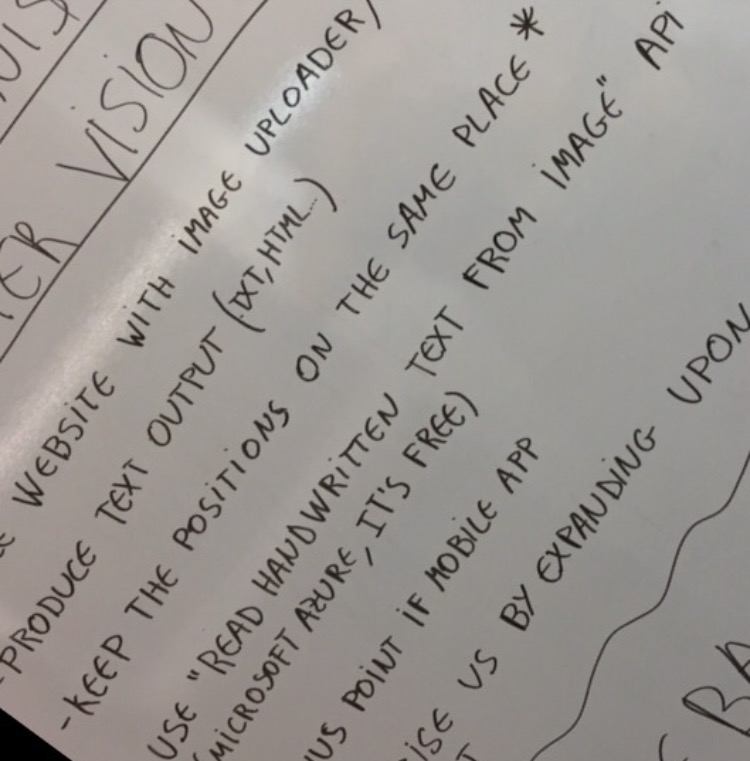 VISION
WEBSITE WITH IMAGE UPLOADER)
-PRODUCE TEXT OUTPUT (TXT, HTML...)
-KEEP THE POSITIONS ON THE SAME PLACE *
USE "READ HANDWRITTEN TEXT FROM IMAGE" API
(MICROSOFT AZURE, IT'S FREE)
POINT IF MOBILE APP
US BY EXPANDING UPON